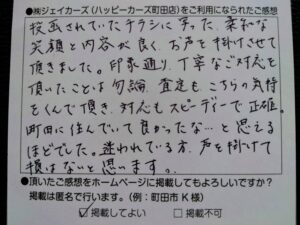 ㈱ジェイカーズ(ハッピーカーズ町田店)をご利用になられたご感想
投函されていたチラシに写った、柔和な
笑顔と内容が良く、お声を掛けさせて
頂きました。印象通り、丁寧なご対応を
頂いたことは勿論、査定もこちらの気持
をくんで頂き、対応もスピーディーで正確。
町田に住んでいて良かったな…と思える
ほどでした。迷われている方、声を掛けて
損はないと思います。
●頂いたご感想をホームページに掲載してもよろしいですか?
掲載は匿名で行います。(例:町田市 K 様)
☑掲載してよい □掲載不可